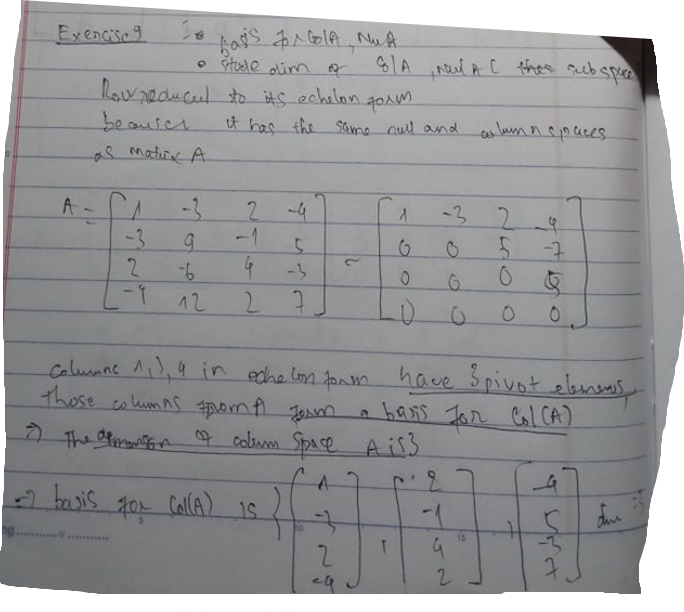 Exercise 9 : • basis for ColA, NulA
• state dim of ColA, NulA ( these subspace
Row reduced to its echelon form
because it has the same null and column spaces
as matrix A
A = [ 1 -3 2 -4 ] ~ [ 1 -3 2 -4 ]
[ -3 9 -1 5 ] [ 0 0 5 -7 ]
[ 2 -6 4 -3 ] [ 0 0 0 5 ]
[ -4 12 2 7 ] [ 0 0 0 0 ]
Columns 1,3,4 in echelon form have 3 pivot elements,
those columns from A form a basis for Col(A)
⇒ The dimension of column space A is 3
⇒ basis for Col(A) is { [ 1 -3 2 -4 ] , [ 2 -1 4 2 ] , [ -4 5 -3 7 ] dim